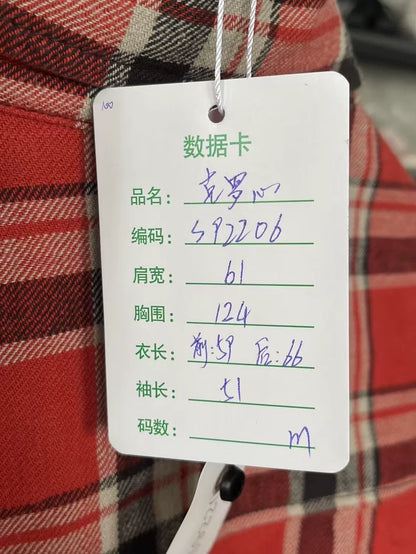 100
数据卡
品名：克罗心
编码：SP2206
肩宽：61
胸围：124
衣长：前：59 后：66
袖长：51
码数：m